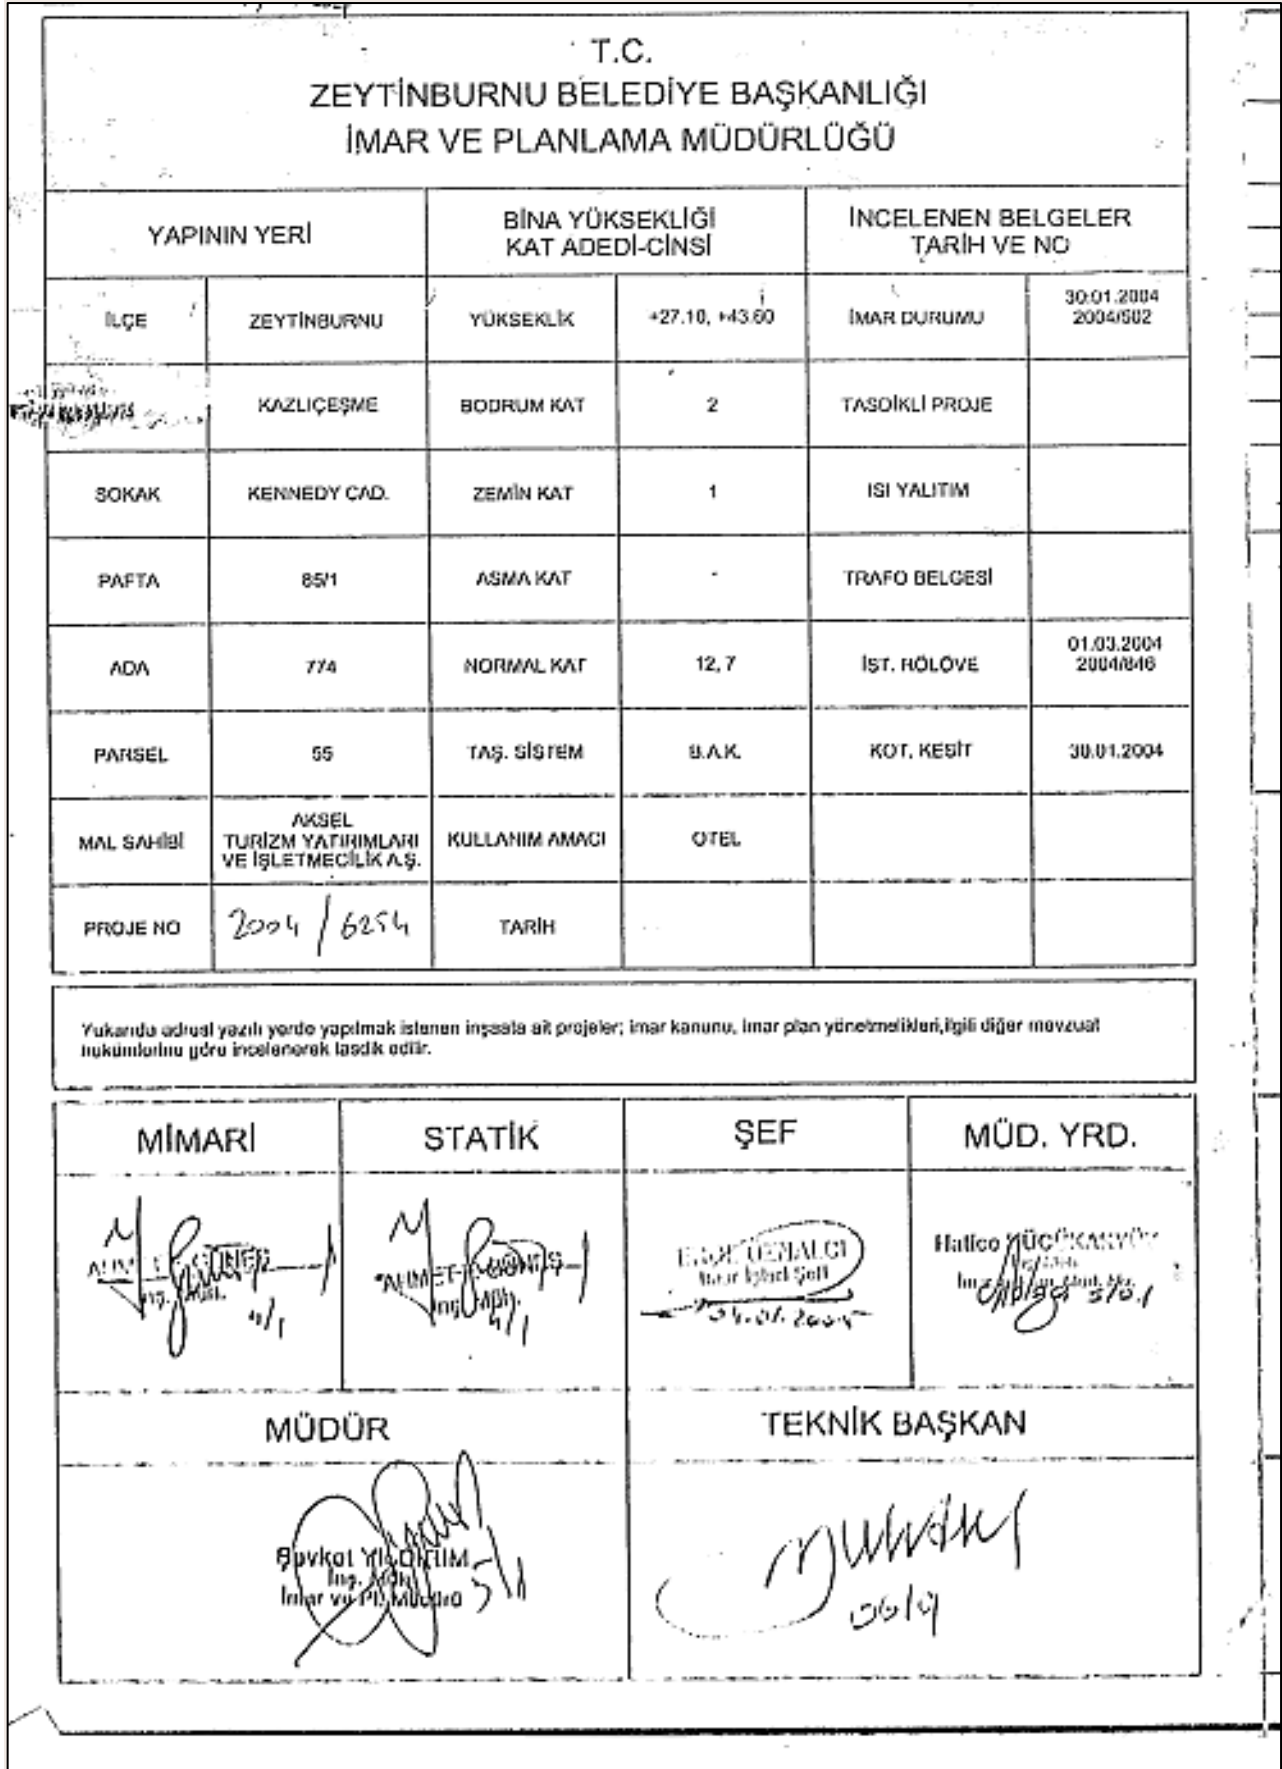 T.C.
ZEYTİNBURNU BELEDİYE BAŞKANLIĞI
İMAR VE PLANLAMA MÜDÜRLÜĞÜ
YAPININ YERİ
BİNA YÜKSEKLİĞİ
KAT ADEDİ-CİNSİ
İNCELENEN BELGELER
TARİH VE NO
İLÇE ZEYTİNBURNU YÜKSEKLİK +27.10, +43.60 İMAR DURUMU
30.01.2004
2004/502
KAZLIÇEŞME BODRUM KAT 2 TASDİKLİ PROJE
SOKAK KENNEDY CAD. ZEMİN KAT 1 ISI YALITIM
PAFTA 85/1 ASMA KAT - TRAFO BELGESİ
ADA 774 NORMAL KAT 12, 7 İST. RÖLÖVE
01.03.2004
2004/846
PARSEL 55 TAŞ. SİSTEM B.A.K. KOT. KESİT 30.01.2004
MAL SAHİBİ
AKSEL
TURİZM YATIRIMLARI
VE İŞLETMECİLİK A.Ş.
KULLANIM AMACI OTEL
PROJE NO 2004 / 6254 TARİH
Yukarıda adresi yazılı yerde yapılmak istenen inşaata ait projeler; imar kanunu, imar plan yönetmelikleri,ilgili diğer mevzuat
hükümlerine göre incelenerek tasdik edilir.
MİMARİ STATİK ŞEF MÜD. YRD.
4/1
AHMET
4/1
İmar İşleri Şefi
04.01.2005
Hatice
5/01
MÜDÜR TEKNİK BAŞKAN
Şevket YILDIRIM
İnş. Müh.
İmar ve Pl. Müdürü
5/1